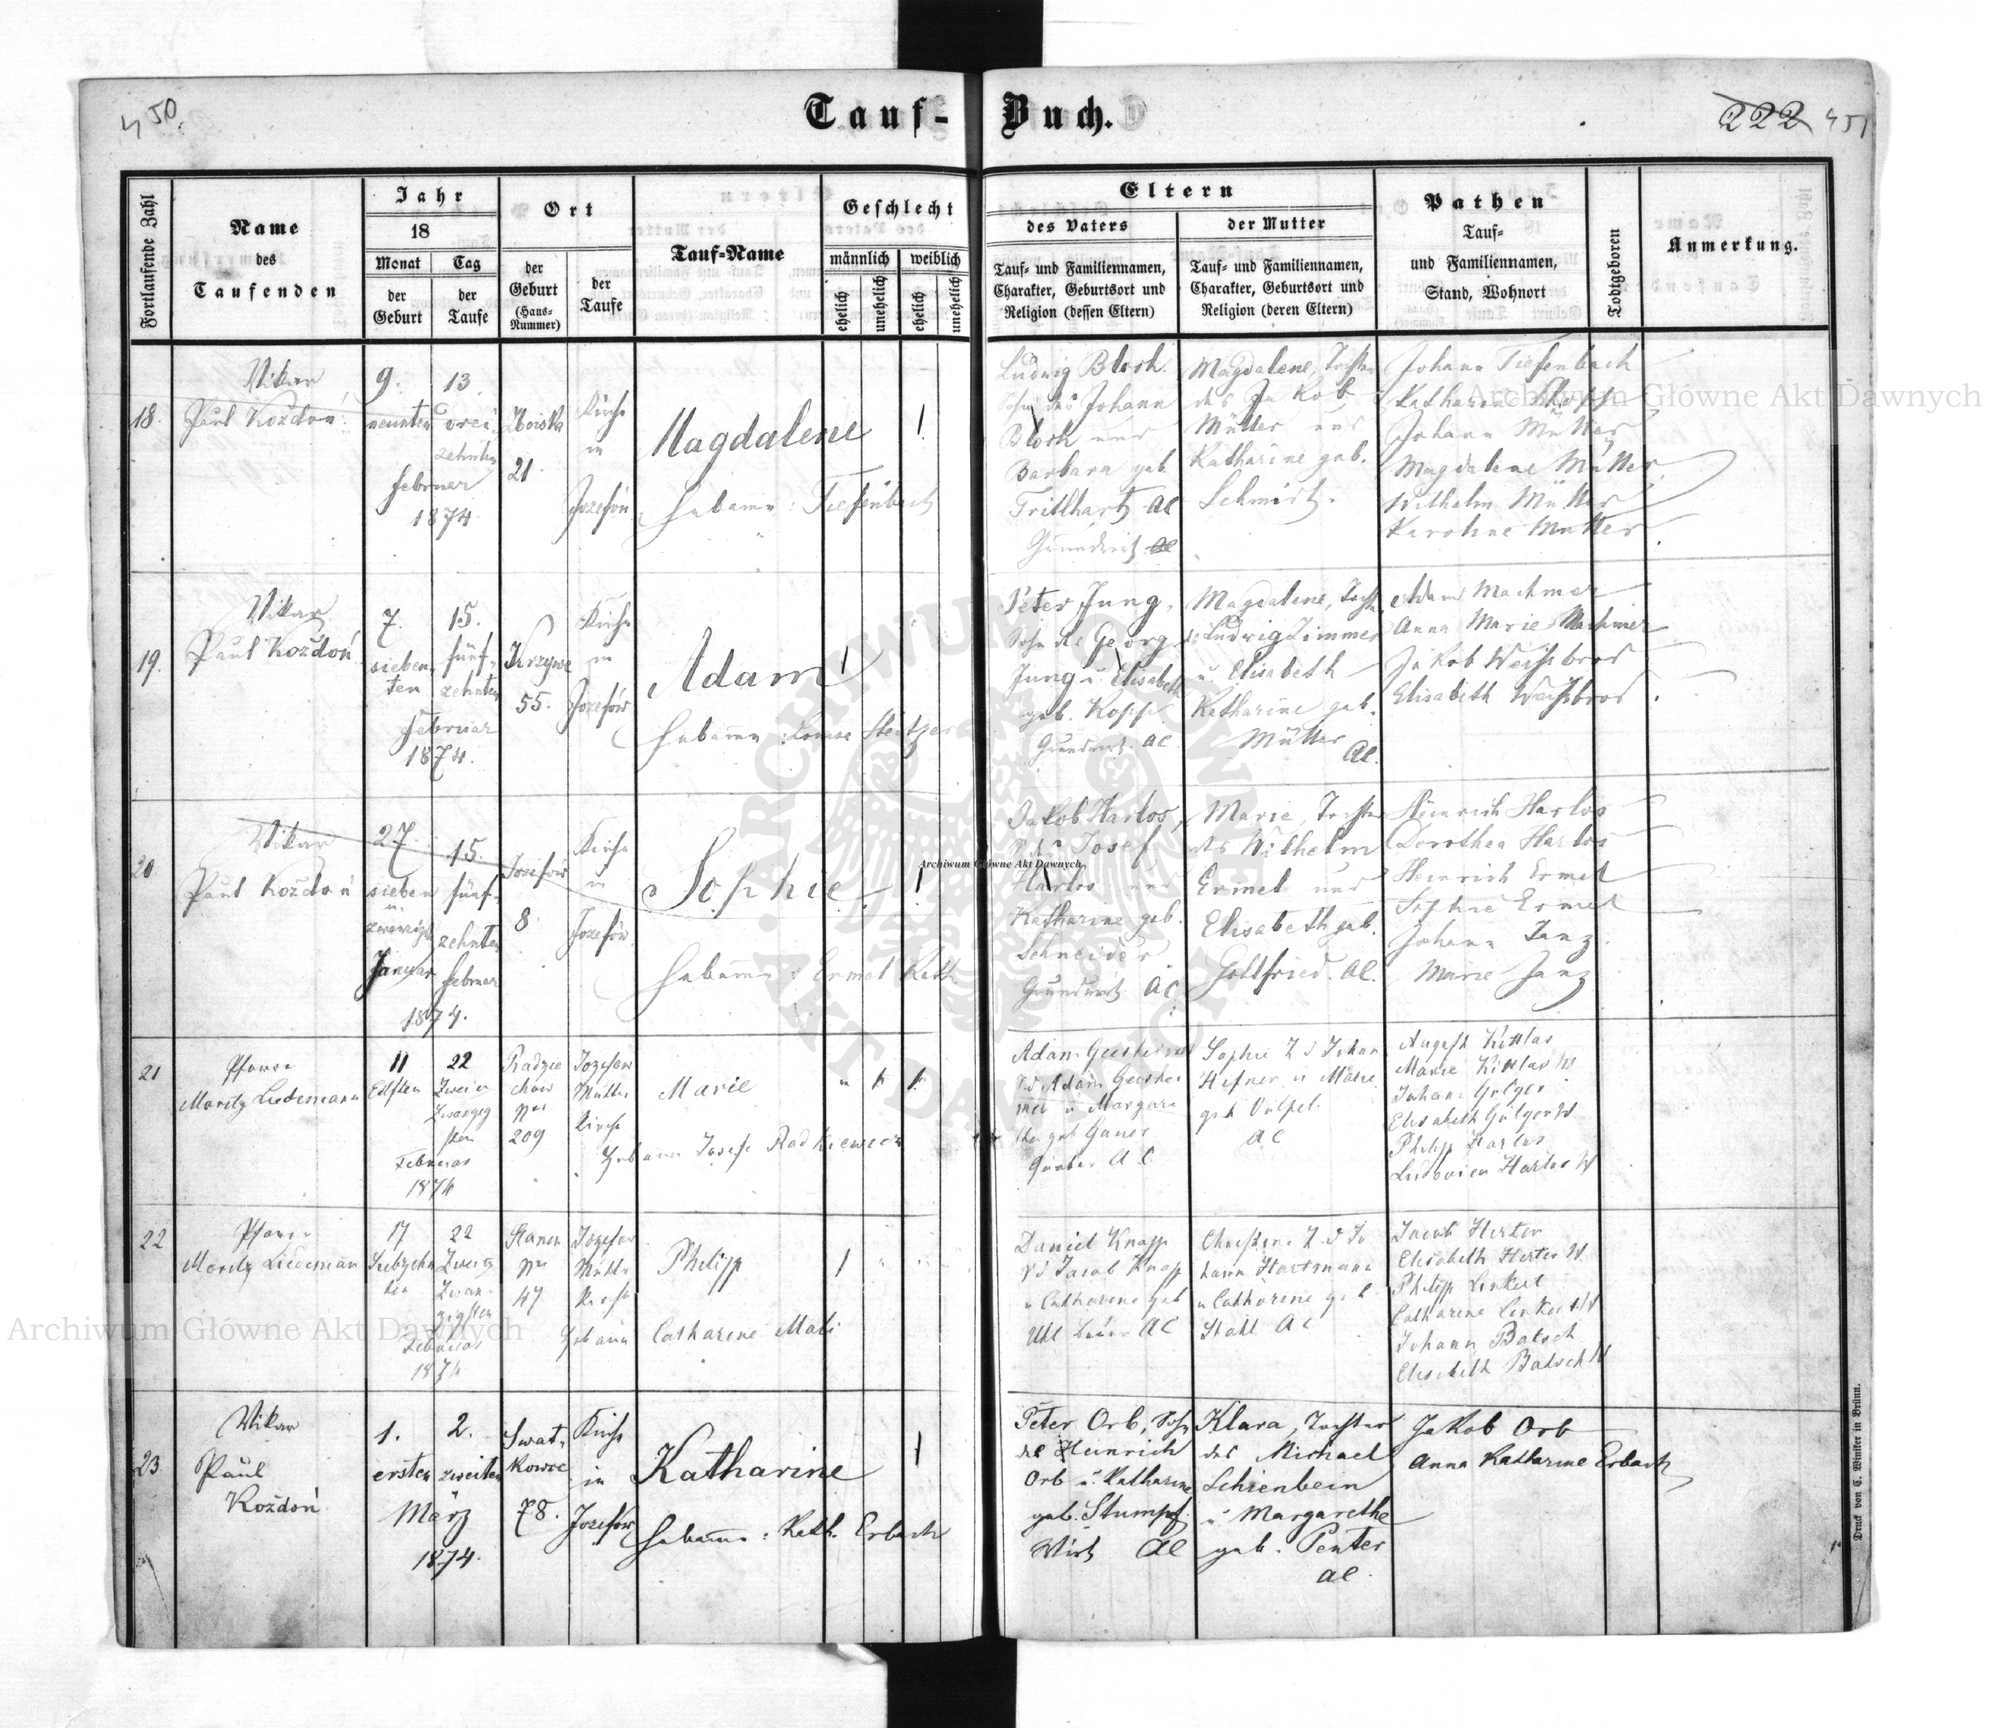 450.
Tauf-Buch.
222 451
Fortlaufende Zahl
Name
des
Taufenden
Jahr
18
Monat
der
Geburt
Tag
der
Taufe
Ort
der
Geburt
(Haus-
Nummer)
der
Taufe
Tauf-Name
Geschlecht
männlich
weiblich
ehelich
unehelich
ehelich
unehelich
Eltern
des Vaters
Tauf- und Familiennamen,
Charakter, Geburtsort und
Religion (dessen Eltern)
der Mutter
Tauf- und Familiennamen,
Charakter, Geburtsort und
Religion (deren Eltern)
Pathen
Tauf-
und Familiennamen,
Stand, Wohnort
Todtgeboren
Anmerkung.
18.
Vikar
Paul Koždoń
9.
neunten
13.
drei-
zehnten
Februar
1874.
21
Kirche
in
Josefów
Magdalene
Hebamme: Tiefenbach
Ludwig Bloch.
Sohn des Johann
Bloch und
Barbara geb.
AC
Magdalene, Tochter
des Jakob
Müller und
Katharine geb.
Schmidt.
Johann Tiefenbach
Katharine
Johann Müller
Magdalene Müller
Wilhelm Müller
Karoline Müller
19.
Vikar
Paul Koždoń
7.
sieben-
ten
15.
fünf-
zehnten
Februar
1874.
Krzywe
55.
Kirche
in
Josefów
Adam
Hebamme: Louise
Peter Jung,
Sohn des Georg
Jung u. Elisabeth
geb. Kopp
Grundwirt. AC
Magdalene, Tochter
des Ludwig Zimmer
u. Elisabeth
Katharine geb.
Müller
AC.
Adam Machmer
Anna Marie Machmer
Jakob Weissbrod
Elisabeth Weissbrod
20
Vikar
Paul Koždoń
27.
sieben
u.
zwanzigst
Januar
15.
fünf-
zehnten
Februar
1874.
Josefów
8
Kirche
in
Josefów
Sophie
Hebamme: Ermel Kath.
Jakob Harlos,
S. des Josef
Harlos und
Katharine geb.
Schneider
Grundwirt AC
Marie, Tochter
des Wilhelm
Ermel und
Elisabeth geb.
Gottfried. AC.
Heinrich Harlos
Dorothea Harlos
Heinrich Ermel
Sophie Ermel
Johann Janz
Marie Janz
21
Pfarrer
Moritz Liedemann
11
Elften
22
Februar
1874
Radzie
chow
Nro
209
Jozefow
Mutter
Kirche
Marie
Adam
Sd Adam
AC
Sophie T d Johan
Hefner u Marie
geb Völpel.
AC
August Kittlas
Marie Kittlas W
Johann Gölger
Elisabeth Gölger W
Philipp Harlos
Harlos W
22
Pfarrer
Moritz Liedemann
17
22
Februar
1874
Stanin
Nro
47
Jozefow
Mutter
Kirche
Philipp
Hebamme Catharine Mali
Daniel Knapp
Sd Jacob Knapp
u Catharine geb
Uhl Bauer AC
Christine T. d Jo
hann Hartmann
u Catharine geb
Stahl AC
Jacob Herter
Elisabeth Herter W
Philipp Linkert
Catharine Linkert W
Johann Batsch
Elisabeth Batsch W
23
Vikar
Paul
Koždoń.
1.
ersten
2.
zweiten
März
1874.
78.
Kirche
in
Josefów
Katharine
Hebamme: Kath. Erbach
Peter Orb, Sohn
des Heinrich
Orb u. Katharine
geb. Stumpf.
Wirt AC
Klara, Tochter
des Michael
Schienbein
u. Margarethe
geb. Penter
AC.
Jakob Orb
Anna Katharine Erbach
Druck von C. Winiker in Brünn.
Archiwum Główne Akt Dawnych
Archiwum Główne Akt Dawnych
Archiwum Główne Akt Dawnych